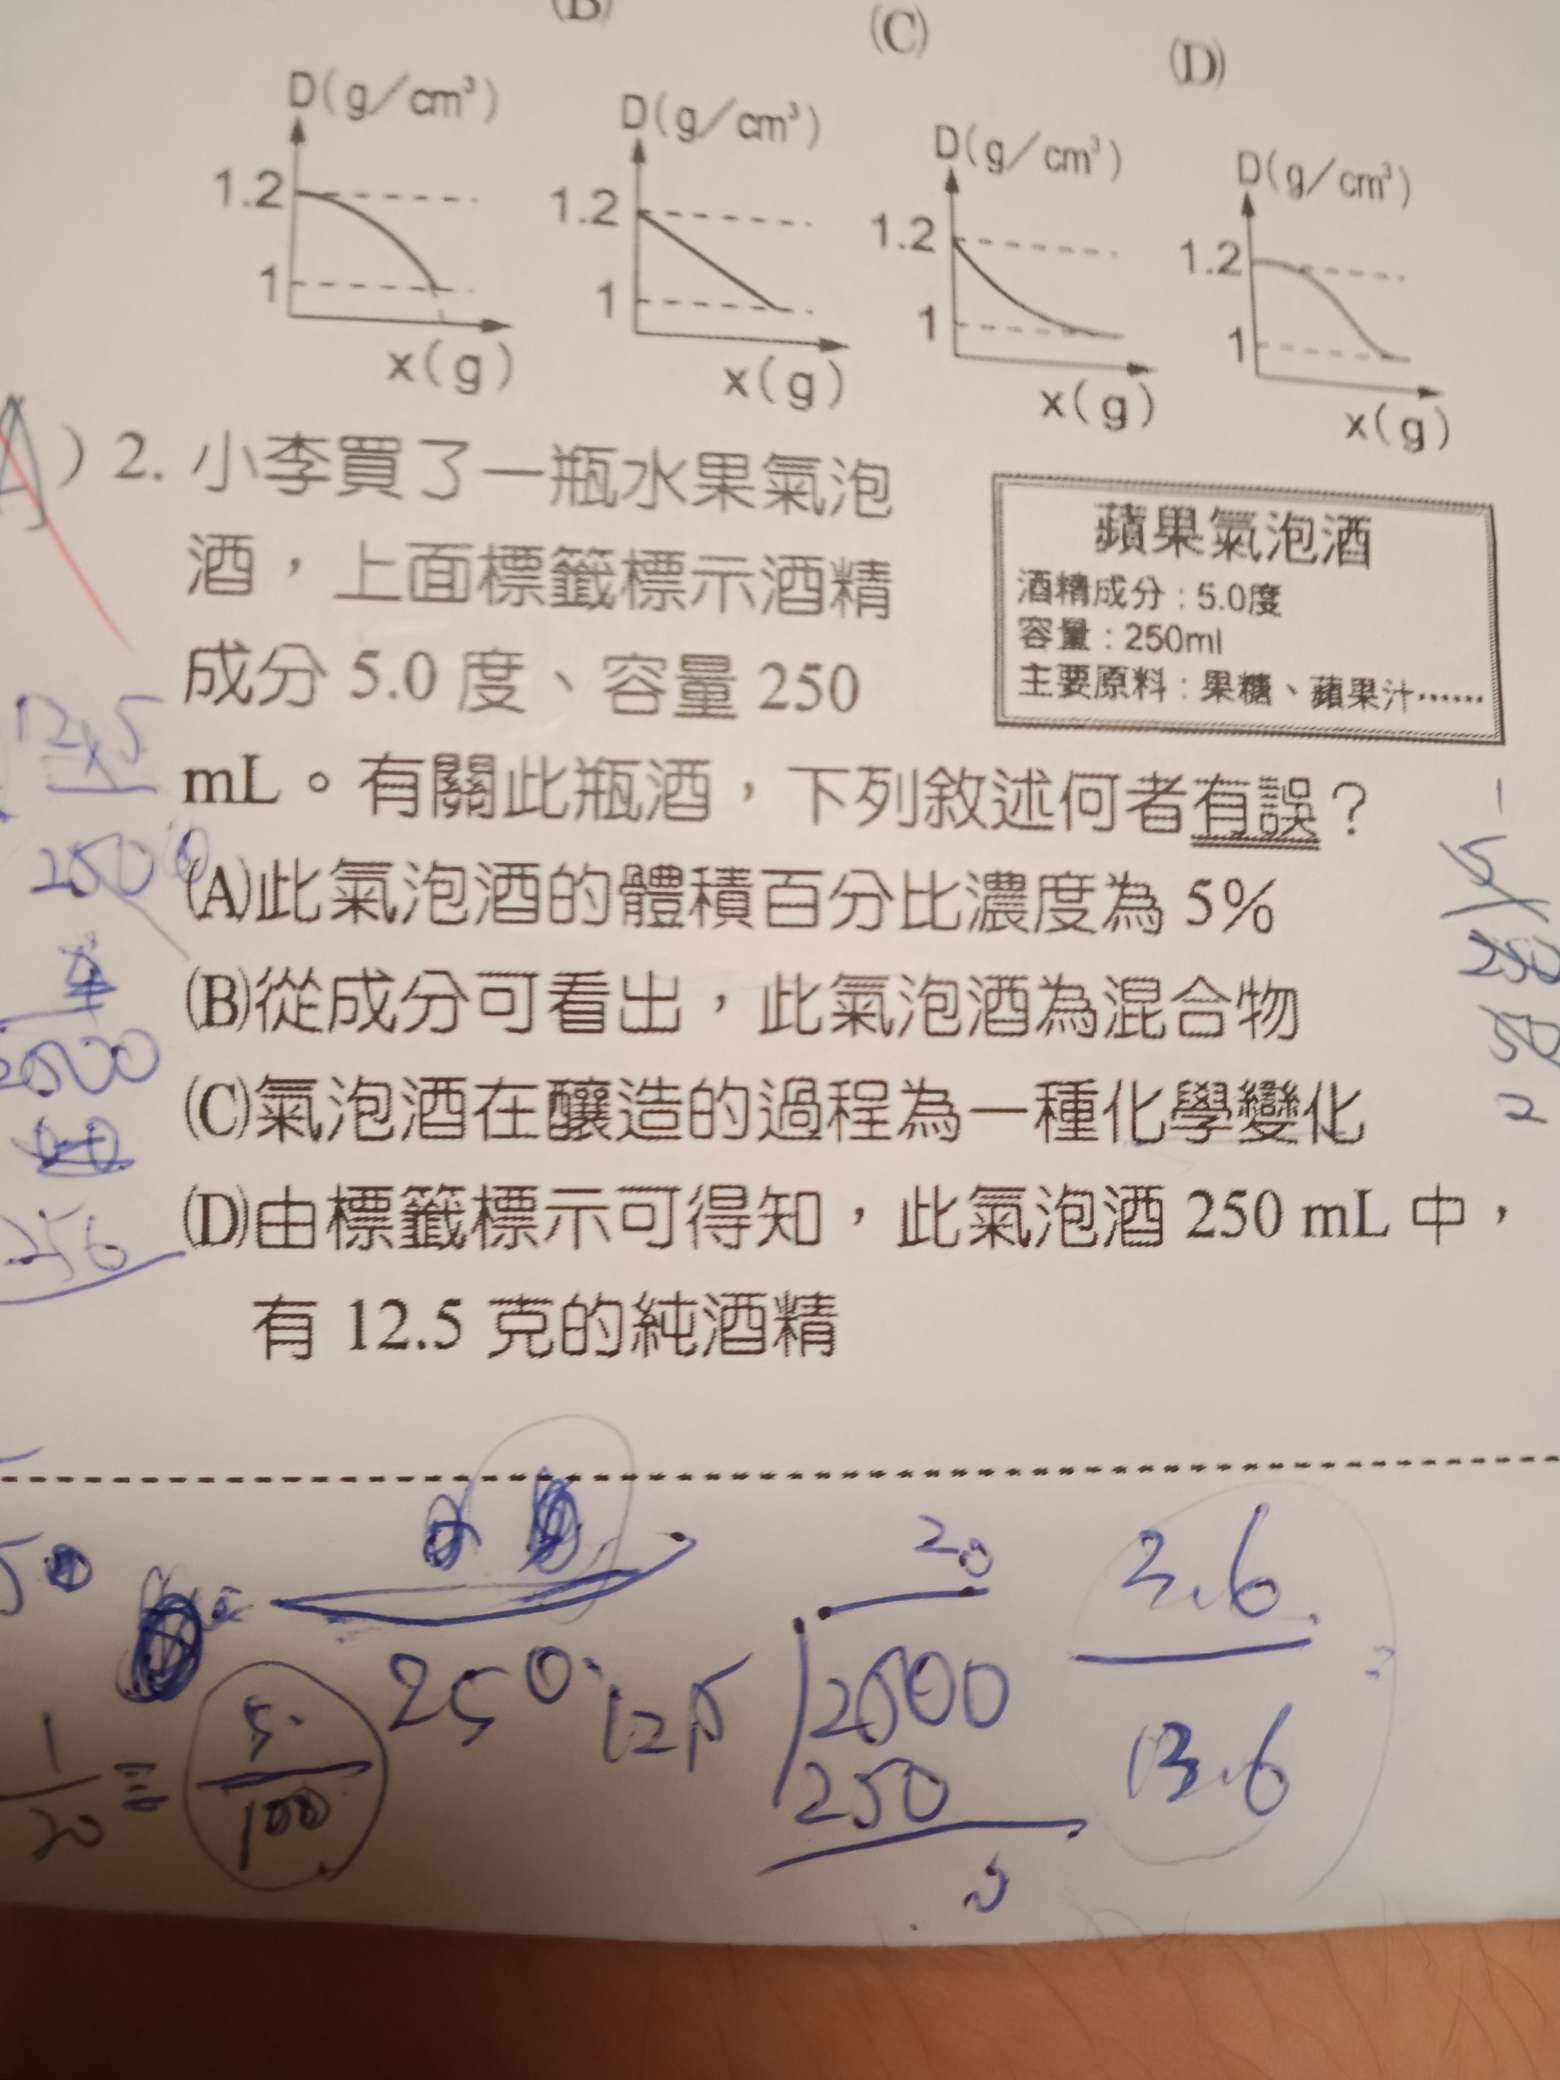 (B)
(C)
(D)
D(g/cm³)
1.2
1
x(g)
D(g/cm³)
1.2
1
x(g)
D(g/cm³)
1.2
1
x(g)
D(g/cm³)
1.2
1
x(g)
A )2. 小李買了一瓶水果氣泡
酒,上面標籤標示酒精
成分 5.0 度、容量 250
mL。有關此瓶酒,下列敘述何者有誤?
蘋果氣泡酒
酒精成分:5.0度
容量:250ml
主要原料:果糖、蘋果汁……
(A)此氣泡酒的體積百分比濃度為 5%
(B)從成分可看出,此氣泡酒為混合物
(C)氣泡酒在釀造的過程為一種化學變化
(D)由標籤標示可得知,此氣泡酒 250 mL 中,
有 12.5 克的純酒精
12x5
2500
256
1
5
250
50
2
1
20
5
100
250
20
125
2500
250
0
3.6
13.6